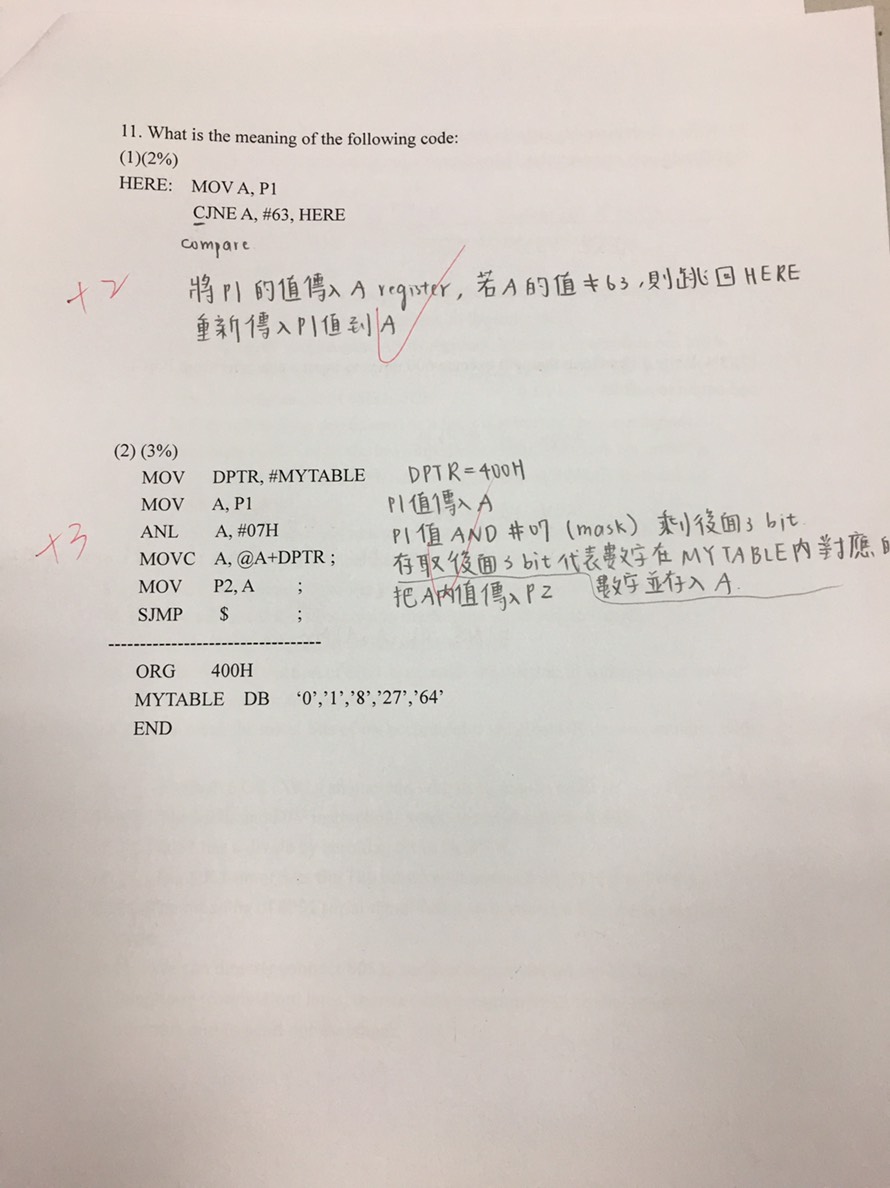 11. What is the meaning of the following code:
(1)(2%)
HERE: MOV A, P1
CJNE A, #63, HERE
compare
+2
將P1的值傳入A register, 若A的值≠63,則跳回HERE
重新傳入P1值到A
(2) (3%)
MOV DPTR, #MYTABLE DPTR=400H
MOV A, P1 P1值傳入A
+3
ANL A, #07H P1值 AND #07 (mask) 剩後面3 bit
MOVC A, @A+DPTR ; 存取後面3 bit代表數字在MYTABLE內對應的
MOV P2, A ; 把A內值傳入P2 數字並存入A.
SJMP $ ;
---------------------------------
ORG 400H
MYTABLE DB ‘0’,’1’,’8’,’27’,’64’
END